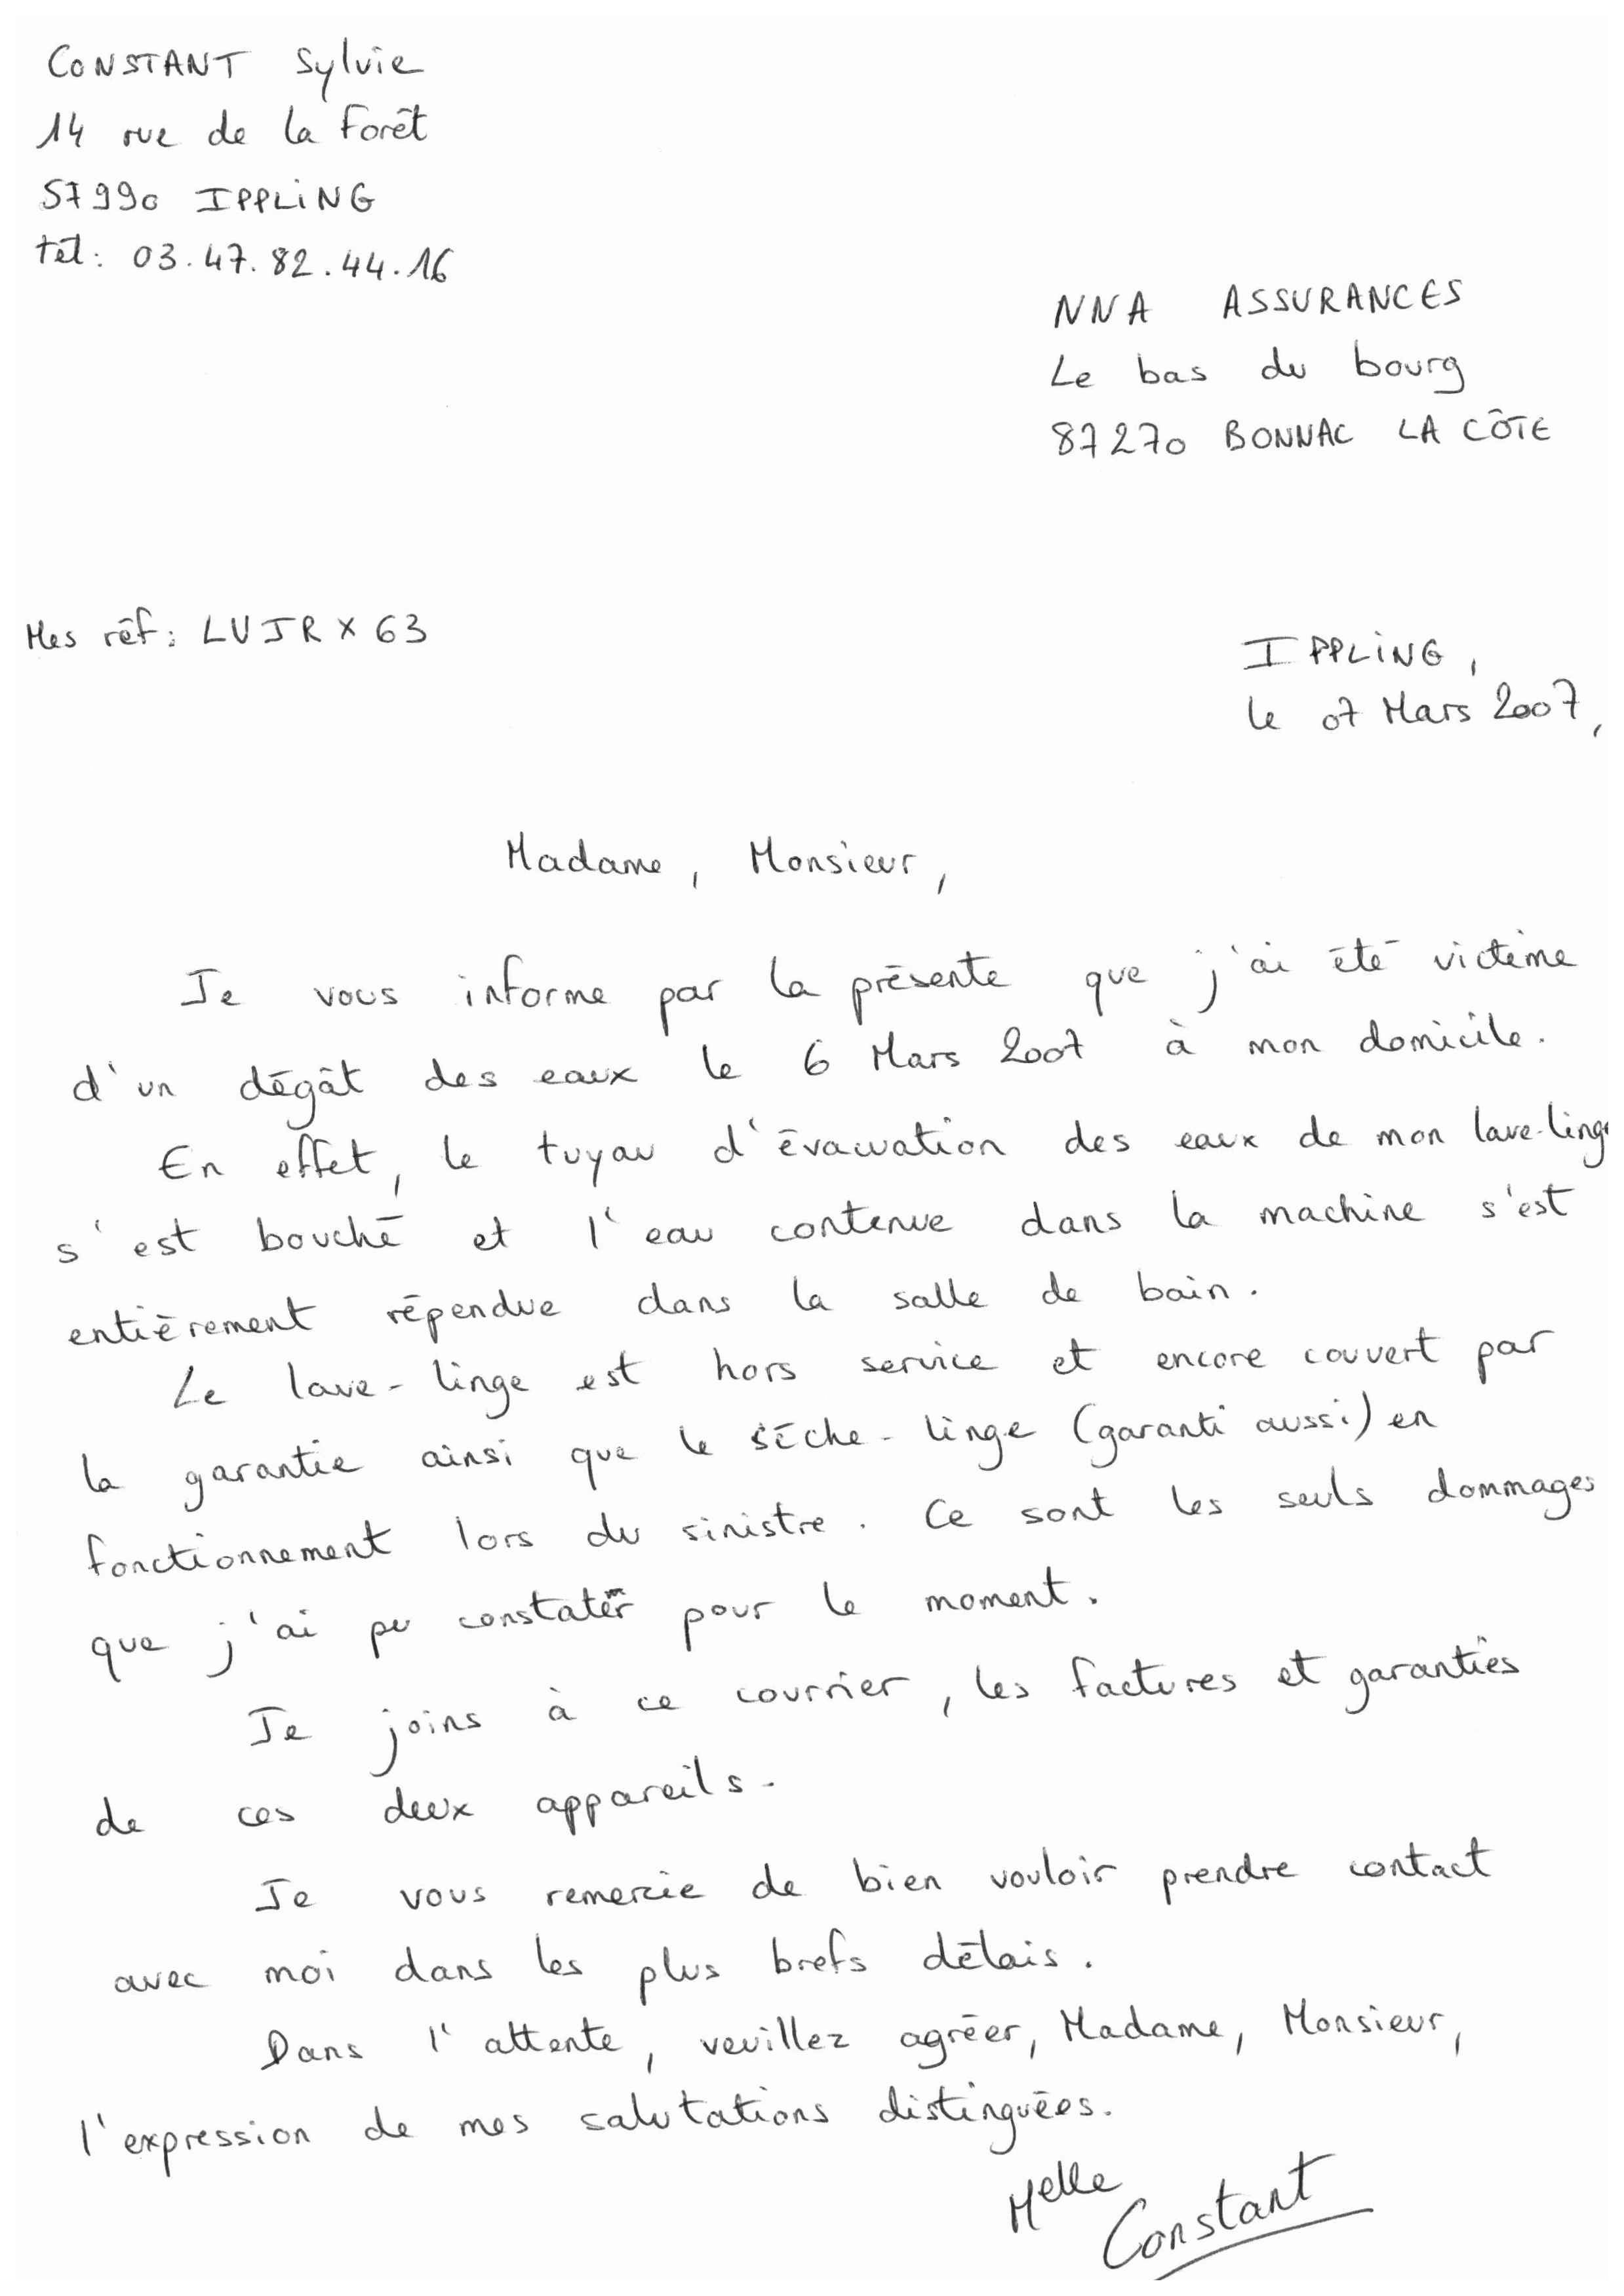 CONSTANT Sylvie
14 rue de la Forêt
57990 IPPLING
tél : 03.47.82.44.16
NNA ASSURANCES
Le bas du bourg
87270 BONNAC LA CÔTE
Mes réf : LVJRX63
IPPLING,
le 07 Mars 2007,
Madame, Monsieur,
Je vous informe par la présente que j'ai été victime
d'un dégât des eaux le 6 Mars 2007 à mon domicile.
En effet, le tuyau d'évacuation des eaux de mon lave-linge
s'est bouché et l'eau contenue dans la machine s'est
entièrement répendue dans la salle de bain.
Le lave-linge est hors service et encore couvert par
la garantie ainsi que le sèche-linge (garanti aussi) en
fonctionnement lors du sinistre. Ce sont les seuls dommages
que j'ai pu constater pour le moment.
Je joins à ce courrier, les factures et garanties
de ces deux appareils.
Je vous remercie de bien vouloir prendre contact
avec moi dans les plus brefs délais.
Dans l'attente, veuillez agréer, Madame, Monsieur,
l'expression de mes salutations distinguées.
Melle
Constant